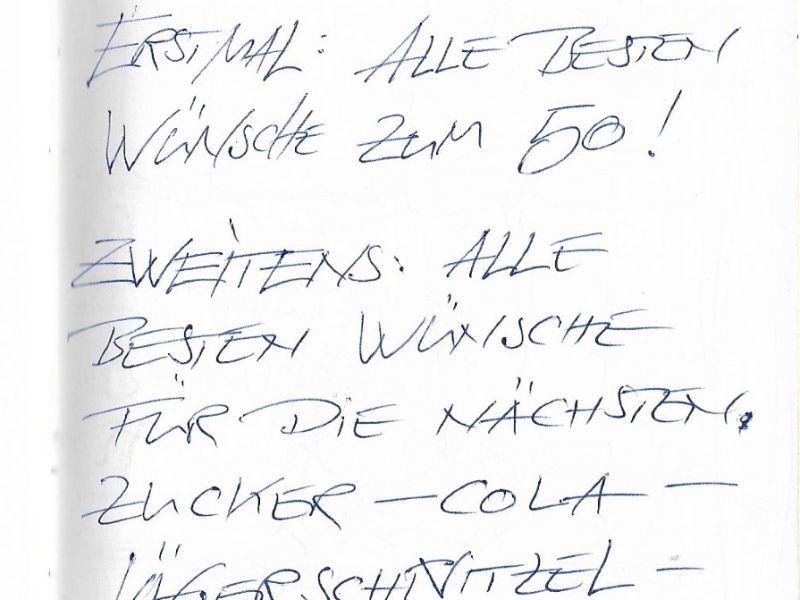 ERSTMAL: ALLE BESTEN
WÜNSCHE ZUM 50!
ZWEITENS: ALLE
BESTEN WÜNSCHE
FÜR DIE NÄCHSTEN.
ZUCKER – COLA –
JÄGERSCHNITZEL –